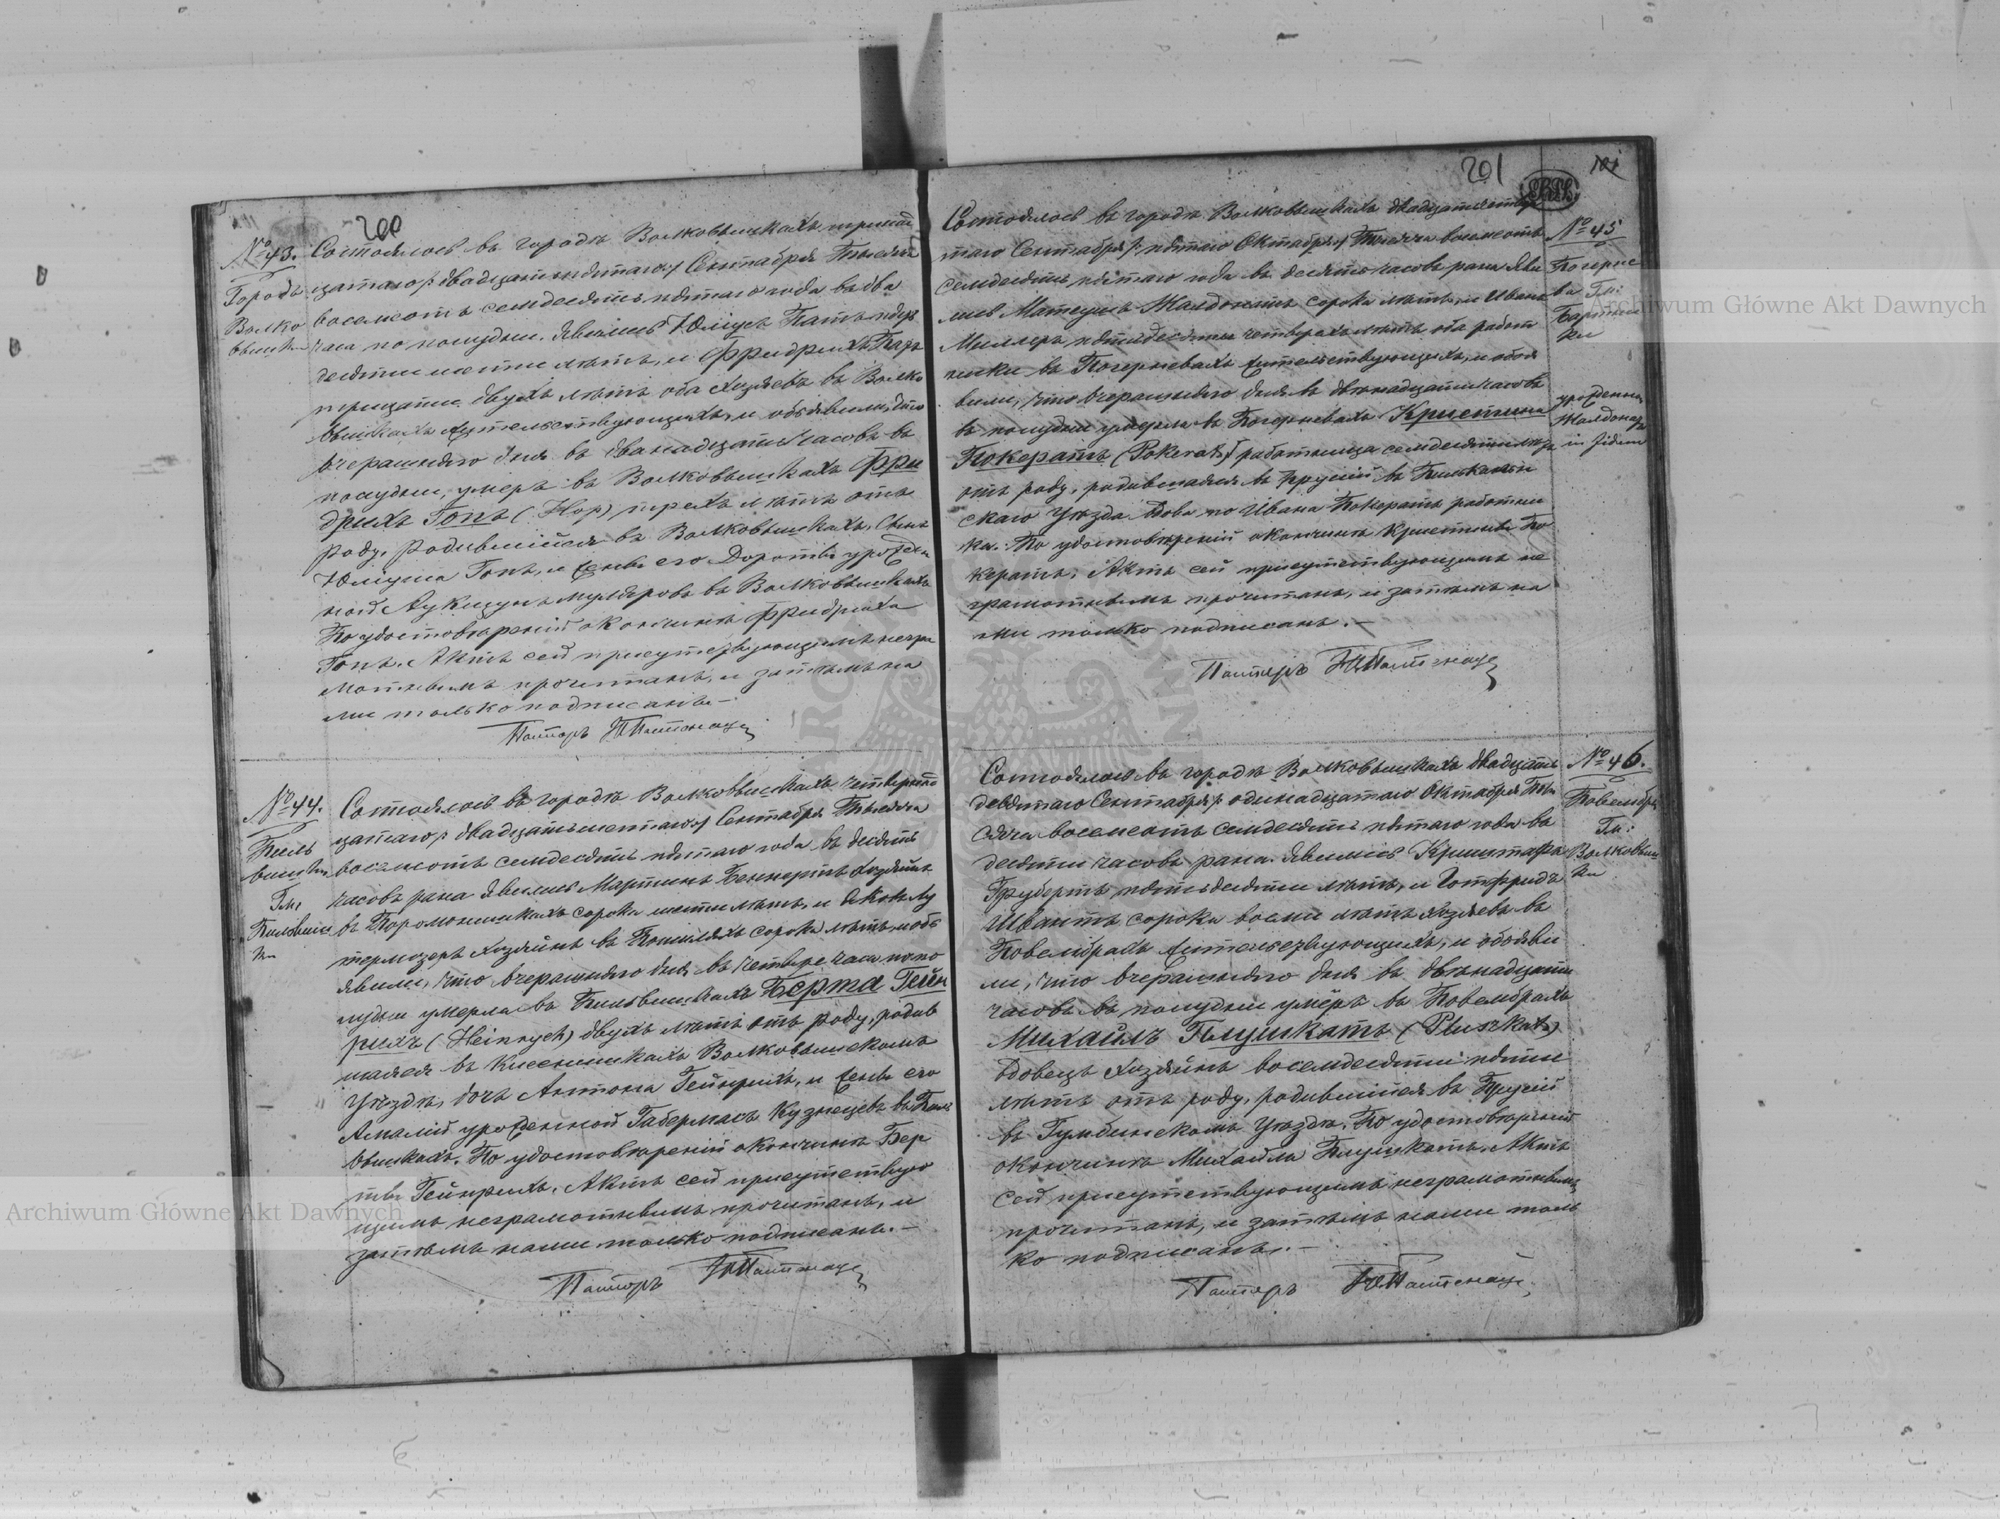 200
№ 43.
Городъ
Волко
вышки
Состоялось въ городѣ Волковышкахъ, тринад
цатаго / двадцать пятаго / Сентября Тысяча
восемсотъ семдесятъ пятаго года въ два
часа по полудни. Явились Юліусъ
десяти шести лѣтъ, и Фридрихъ
тридцати двухъ лѣтъ оба хозяевъ въ Волко
вышкахъ жительствующихъ, и объявили, что
вчерашняго дня въ двенадцать часовъ въ
полудни, умеръ въ Волковышкахъ Фри
дрихъ Гопъ (Hop) трехъ лѣтъ отъ
роду, родившійся въ Волковышкахъ, сынъ
Юліуса Гопъ, и жены его Доротеи урожден
ной въ Волковышкахъ
По удостовѣреніи о кончинѣ Фридриха
Гопъ. Актъ сей присутствующимъ негра
мотнымъ прочитанъ, и затѣмъ на
ми только подписанъ. —
Пасторъ
№ 44.
Пиль
вишки
Гм:
Пильвиш
ки
Состоялось въ городѣ Волковышкахъ четырнад
цатаго / двадцать шестаго / Сентября Тысяча
восемсотъ семдесятъ пятаго года въ десять
часовъ рана явились Мартинъ Беккертъ хозяинъ
въ сорока шести лѣтъ, и
хозяинъ въ сорока лѣтъ, и объ
явили, что вчерашняго дня въ четыре часа по по
лудни умерла въ Пильвишкахъ Берта Гейн
рихъ (Heinrych) двухъ лѣтъ отъ роду, родив
шаяся въ Волковышскомъ
Уѣздѣ, дочь Антона Гейнрихъ, и жены его
Амаліи урожденной Габермасъ Кузнецовъ въ Пиль
вишкахъ. По удостовѣреніи о кончинѣ Бер
ты Гейнрихъ. Актъ сей присутствую
щимъ неграмотнымъ прочитанъ, и
затѣмъ нами только подписанъ. —
Пасторъ
201
101
№ 45
Гм:
Бартни
ки
урожденна
in Jidien
Состоялось въ городѣ Волковышкахъ двадцать
таго Сентября / пятаго Октября / Тысяча восемсотъ
семдесятъ пятаго года въ десять часовъ рана. Яви
лись Матеушъ сорока лѣтъ, и Иванъ
Миллеръ пятидесяти четырехъ лѣтъ оба работ
ники въ жительствующихъ, и объя
вили, что вчерашняго дня въ двѣнадцати часовъ
въ полудни умерла въ Кристина
Покератъ (Pokerat) работница семдесяти лѣтъ
отъ роду, родившаяся въ Пруссіи въ
скаго Уѣзда Вдова по Ивана Покератъ работни
ка. По удостовѣреніи о кончинѣ Кристины По
кератъ, Актъ сей присутствующимъ не
грамотнымъ прочитанъ, и затѣмъ на
ми только подписанъ. —
Пасторъ
№ 46.
Повембры
Гм:
Волковыш
ки
Состоялось въ городѣ Волковышкахъ двадцать
девятаго Сентября / одинадцатаго Октября Ты
сяча восемсотъ семдесятъ пятаго года въ
десяти часовъ рана. Явились Криштафъ
Грубертъ пятьдесяти лѣтъ, и Готфридъ
Швантъ сорока восми лѣтъ хозяевъ въ
Повембрахъ жительствующихъ, и объяви
ли, что вчерашняго дня въ двѣнадцати
часовъ въ полудни умеръ въ Повембрахъ
Михаилъ Плушкатъ (Pluszkat)
вдовецъ хозяинъ восемдесяти пяти
лѣтъ отъ роду, родившійся въ Пруссіи
въ Гумбинскомъ Уѣздѣ. По удостовѣреніи
о кончинѣ Михаила Плушкатъ. Актъ
сей присутствующимъ неграмотнымъ
прочитанъ, и затѣмъ нами толь
ко подписанъ. —
Пасторъ
Archiwum Główne Akt Dawnych
Archiwum Główne Akt Dawnych